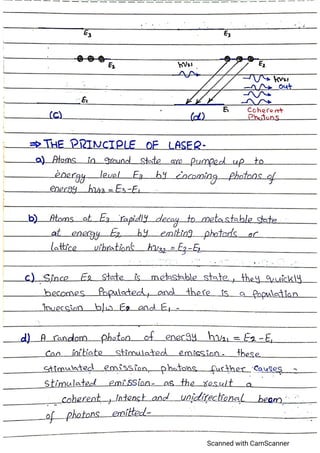 E3 E3
E2 hν21 E2
hν21
out
E1 E1 Coherent
(c) (d) Photons
⇒ THE PRINCIPLE OF LASER-
a) Atoms in ground state are pumped up to
energy level E3 by incoming photons of
energy hν13 = E3-E1
b) Atoms at E3 rapidly decay to metastable state
at energy E2 by emiting photons or
lattice vibrations hν32 = E3-E2
c) Since E2 state is metastable state, they quickly
becomes Populated, and there is a population
inversion b/w E2 and E1.
d) A random photon of energy hν21 = E2-E1
Can initiate stimulated emission. these
stimulated emission photons further causes
stimulated emission. as the result a
coherent, Intenst and unidirectional beam
of photons emitted-
Scanned with CamScanner